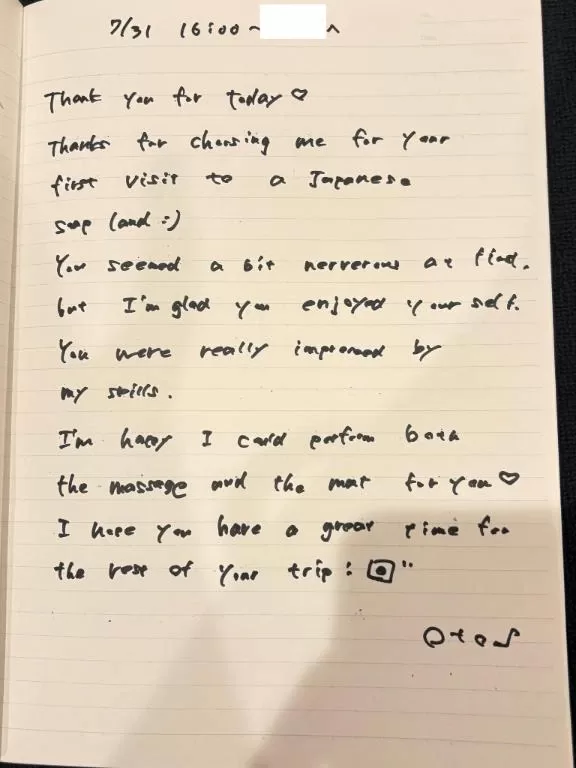 7/31 16:00~
Thank you for today ♡
Thanks for choosing me for your
first visit to a Japanese
soap land :)
You seemed a bit nerverous at first.
but I'm glad you enjoyed your self.
You were really impressed by
my skills.
I'm happy I could perform both
the massage and the mat for you ♡
I hope you have a great time for
the rest of your trip!